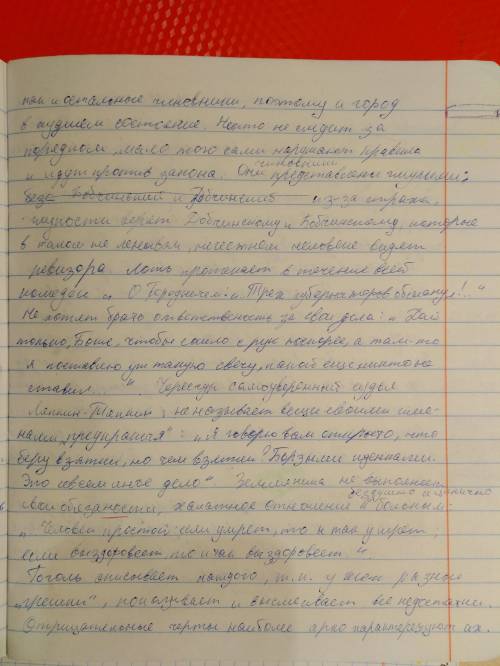 как и остальные чиновники, поэтому и город
в худшем состояние. Никто не следит за
порядком, мало того сами нарушают правила
чиновники
и идут против закона. Они представлены глупыми:
беза Бобчинский и Добчинский из-за страха,
глупости верят Добчинскому и Бобчинскому, которые
в таком не человеке видят
ревизора. Ложь протекает в течение всей
комедии. О Городничем: „Трех губернаторов обманул!.."
Не хотят брать ответственность за свои дела: „Дай
только, Боже, чтобы сошло с рук поскорее, а там-то
я поставлю уж такую свечу, какой еще никто не
ставил...". Чересчур самоуверенный судья
Ляпкин-Тяпкин, не называет вещи своими име-
нами, : „Я говорю вам открыто, что
беру взятки, но чем взятки? Борзыми щенками.
Это совсем иное дело". Земляника не выполняет
бездушно и цинично
свои обязаности, халатное отношение к больным:
„Человек простой: если умрет, то и так умрет,
если выздоровеет, то и так выздоровеет".
Гоголь описывает каждого, т.к. у всех разные
„грешки", показывает и высмеивает все недостатки.
Отрицательные черты наиболее ярко характеризуют их.